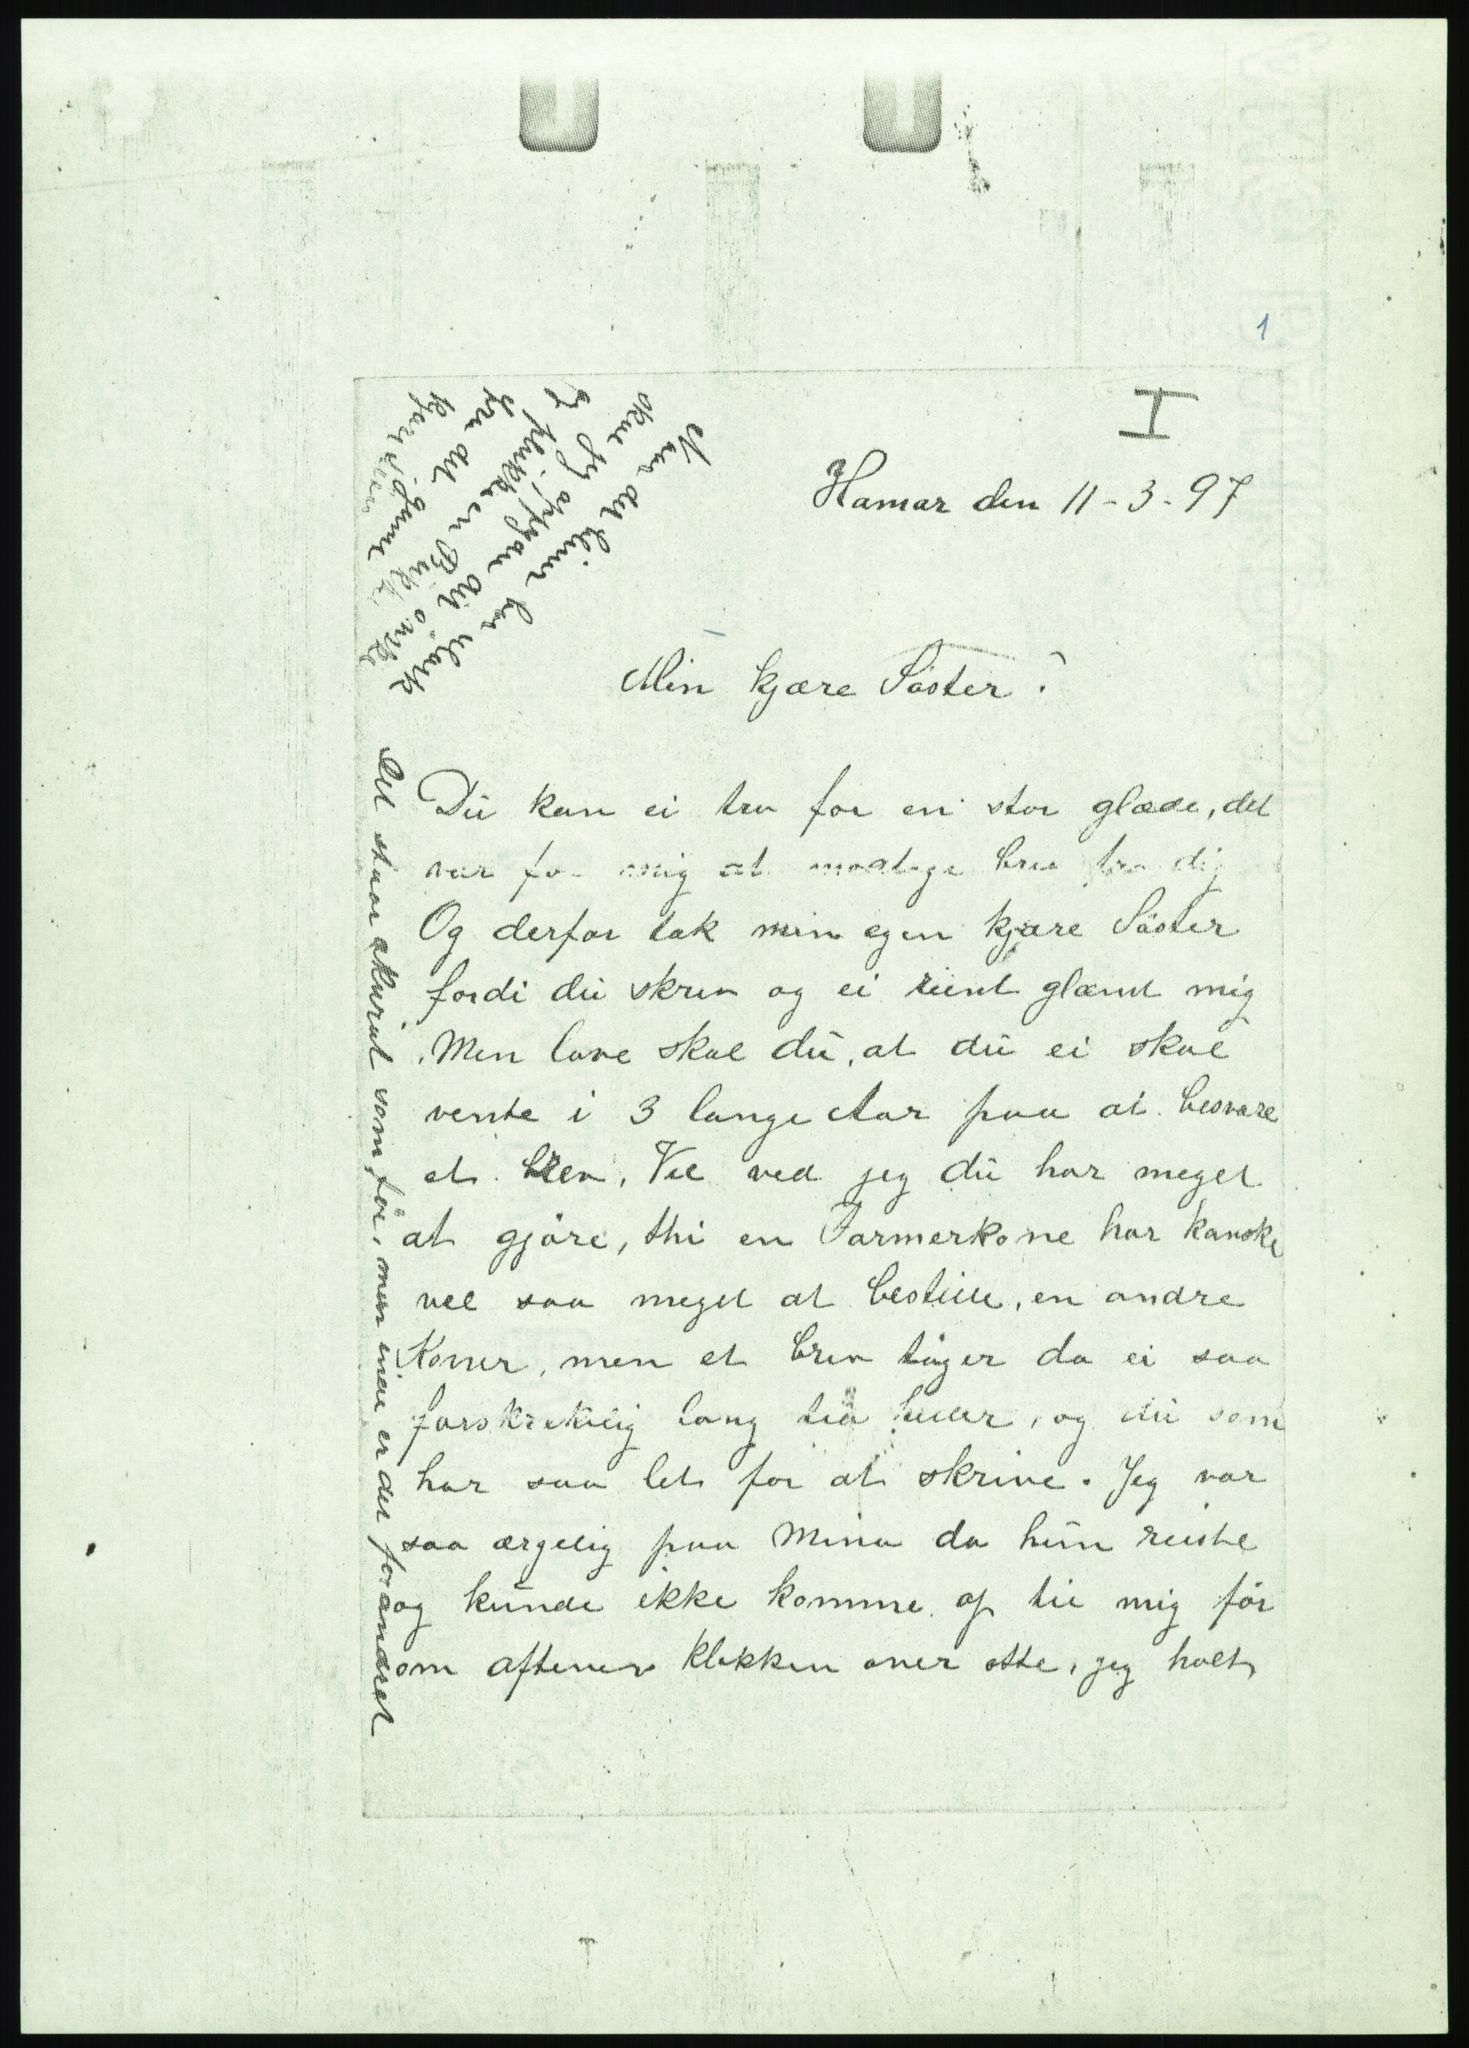 1
I
Hamar den 11-3-97
Min kjære Söster!
Du kan ei tro for en stor glæde, det
var for mig at modtage brev fra dig
Og derfor tak min egen kjære Söster
fordi du skrev og ei reint glæmt mig
. Men love skal du, at du ei skal
vente i 3 lange Aar paa at besvare
et brev. Vel ved jeg du har meget
at gjöre, thi en Farmerkone har kanske
vel saa meget at bestille, en andre
Koner, men et brev tager da ei saa
forskrekelig lang tid heller, og du som
har saa let for at skrive. Jeg var
saa ærgelig paa Mina da hun reiste
og kunde ikke komme op til mig för
om aftenen klokken over otte, jeg holt
Det staar akurat som för, men inde er det forandret
Naar det bliver
skal jeg opgaa
og plukke en Buk
fra det
kjære gamle